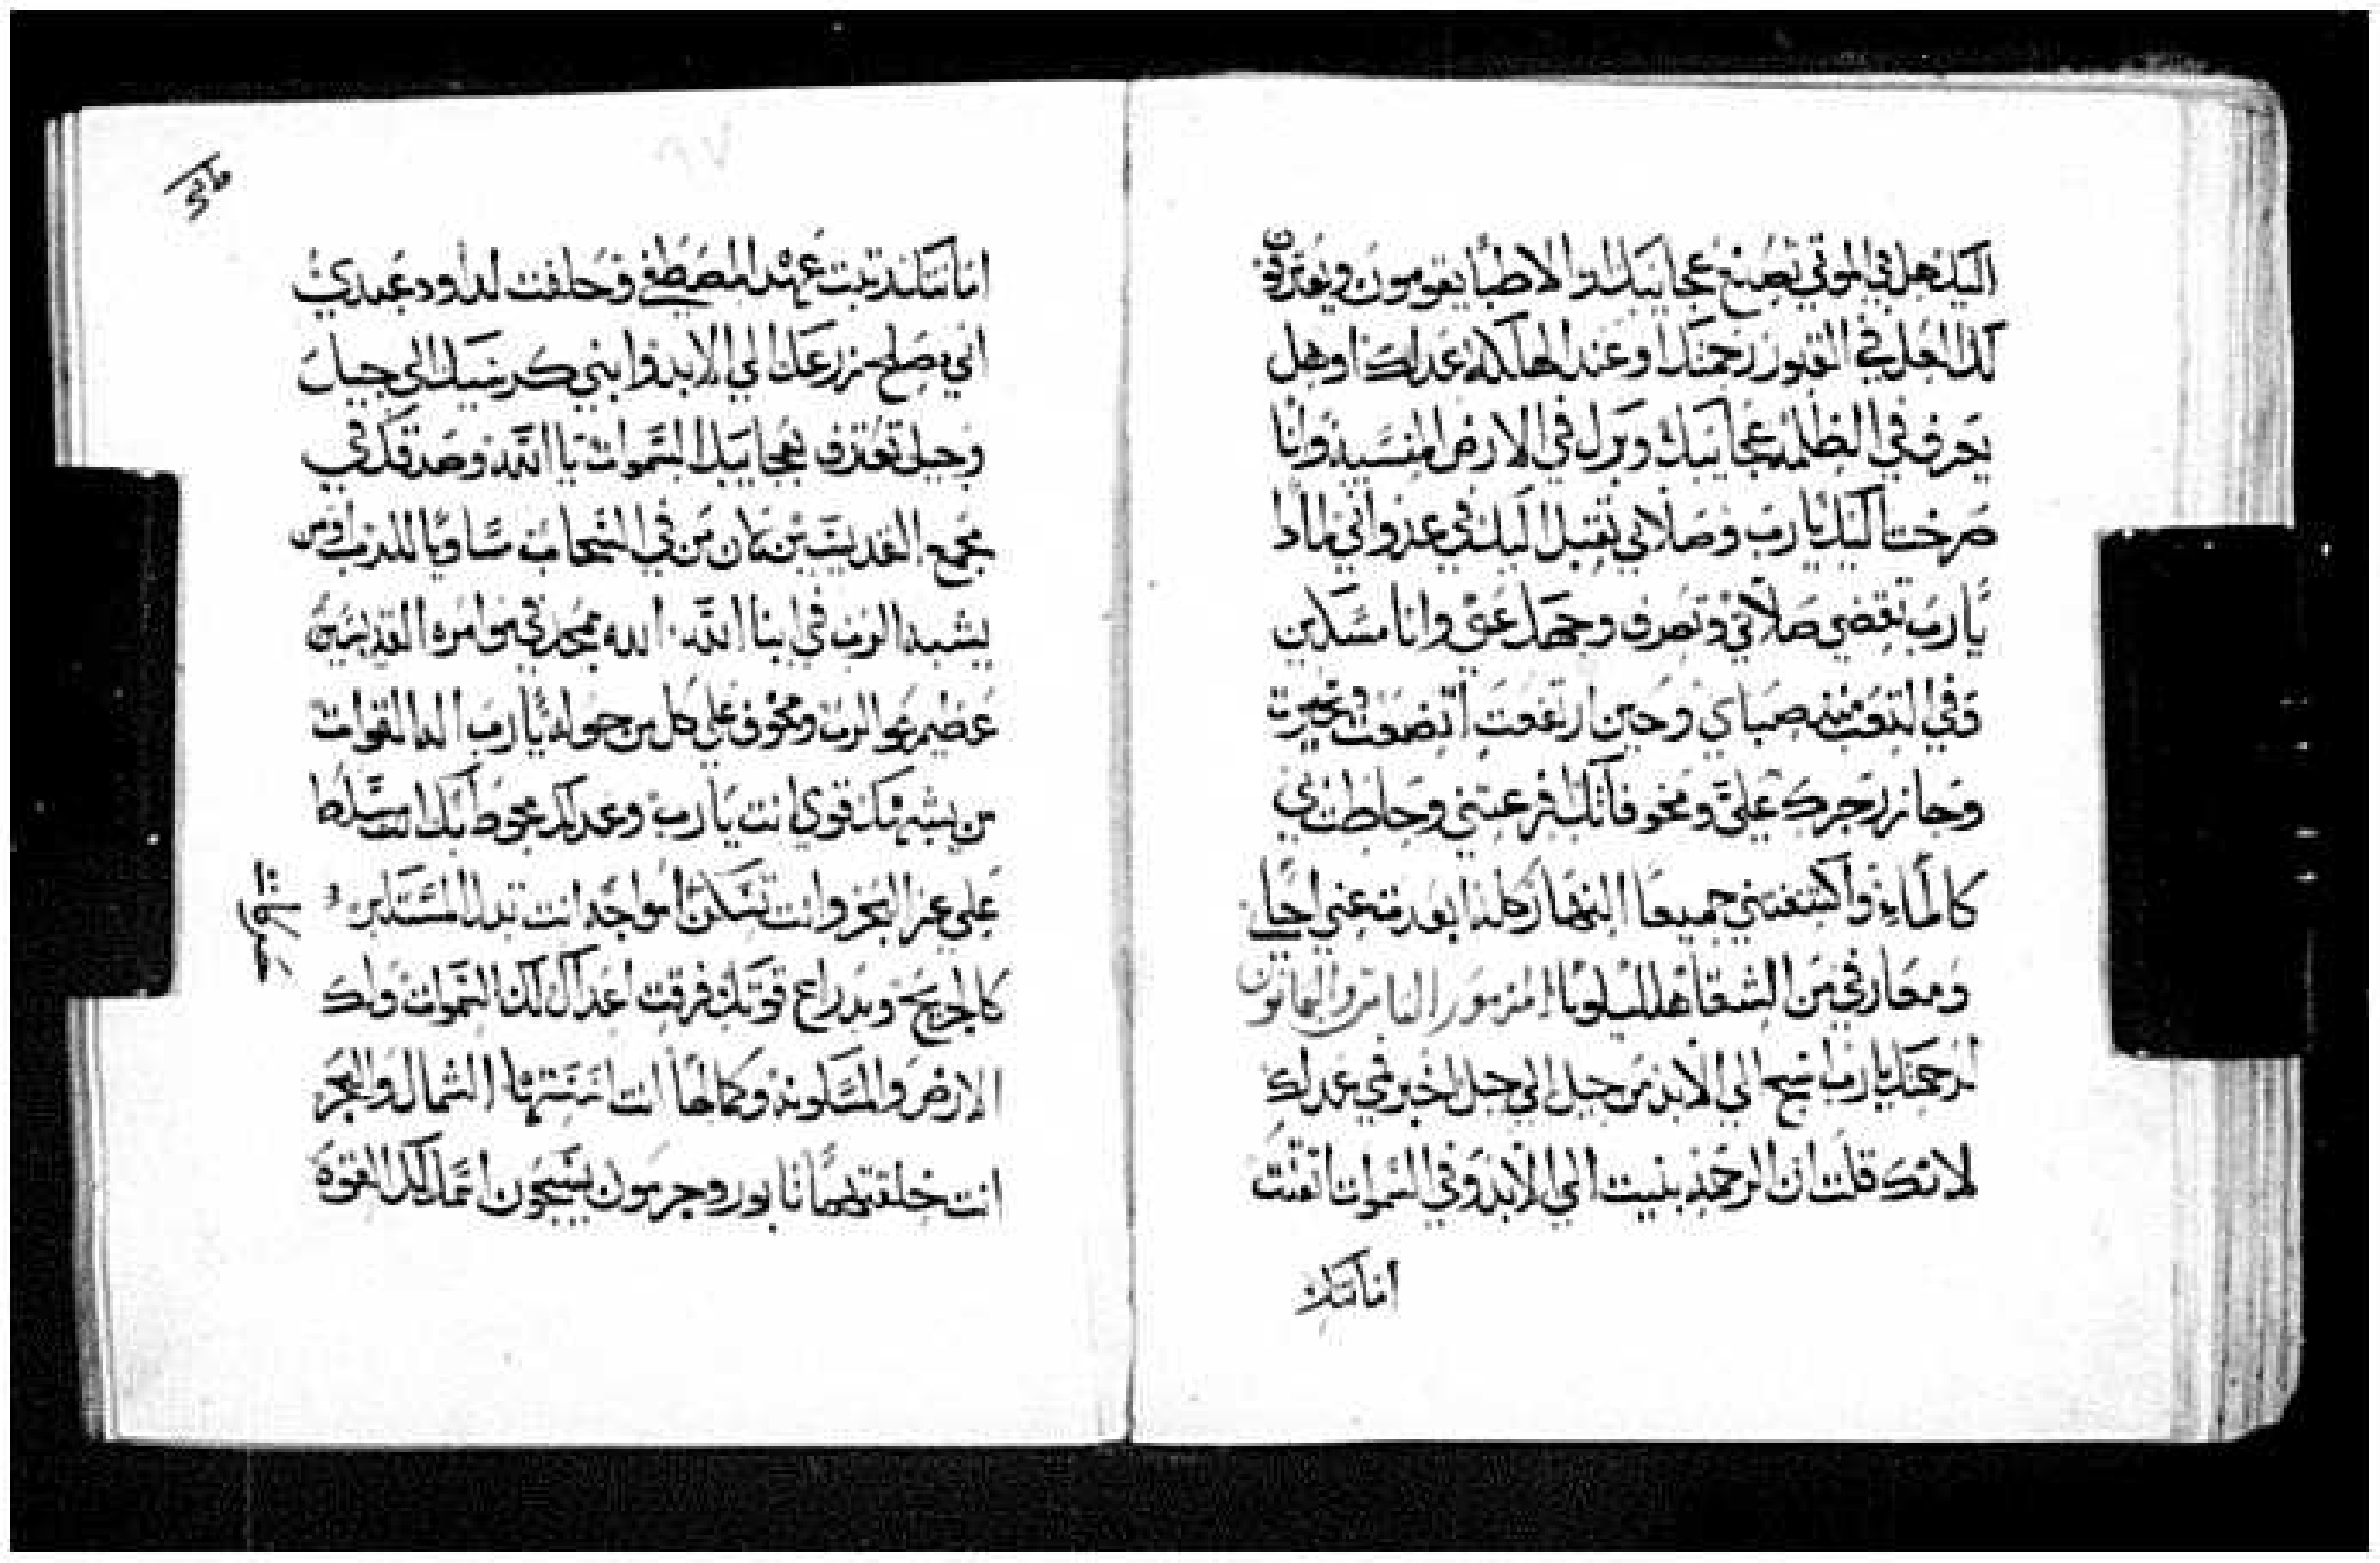 اليك هل في الموتي تصنع عجايبك او الاطبا يقومون ويعترفون
لك العل في القبور رحمتك وعند الهلكه عدلك او هل
يعرف في الظلمه عجايبك وبرك في الارض المنسيه وانا
صرخت اليك يارب وصلاتي تقبل اليك في غدواتي لماذا
يارب تقصي صلاتي وتصرف وجهك عني وانا مسكين
وفي التعب منذ صباي وحين ارتفعت اتضعت وتحيرت
وجاز رجزك علي ومخوفاتك افزعتني وحاطت بي
كالماء واكتنفتني جميعا النهار كله ابعدت عني احباي
ومعارفي من الشقا هلليلويا المزمور الثامن والثمانون
لرحمتك يارب اسبح الي الابد من جيل الي جيل اخبر في عدلك
لانك قلت ان الرحمه بنيت الي الابد وفي السموات اتقنت
امانتك
امانتك ثبت عهدا لمصطفي وحلفت لداود عبدي
اني مصلح زرعك الي الابد وابني كرسيك الي جيل
وجيل تعترف بعجايبك السموات يا الله وصدقك في
مجمع القديسين كان من في السحاب ساويا للرب ومن
يشبه الرب في ابنا الله الله ممجد في موامره القديسين
عظيم هو الرب ومخوف علي كل من حوله يارب اله القوات
من يشبهك قوي انت يارب وعدلك محوط بك انت تسلط
علي عز البحر وانت تسكن امواجه انت تذل المستكبر
كالجريح وبذراع قوتك فرقت اعداك لك السموات ولك
الارض والمسكونه وكمالها انت اسستها الشمال والبحر
انت خلقتهما تابور وحرمون يسبحون اسمك لك القوه